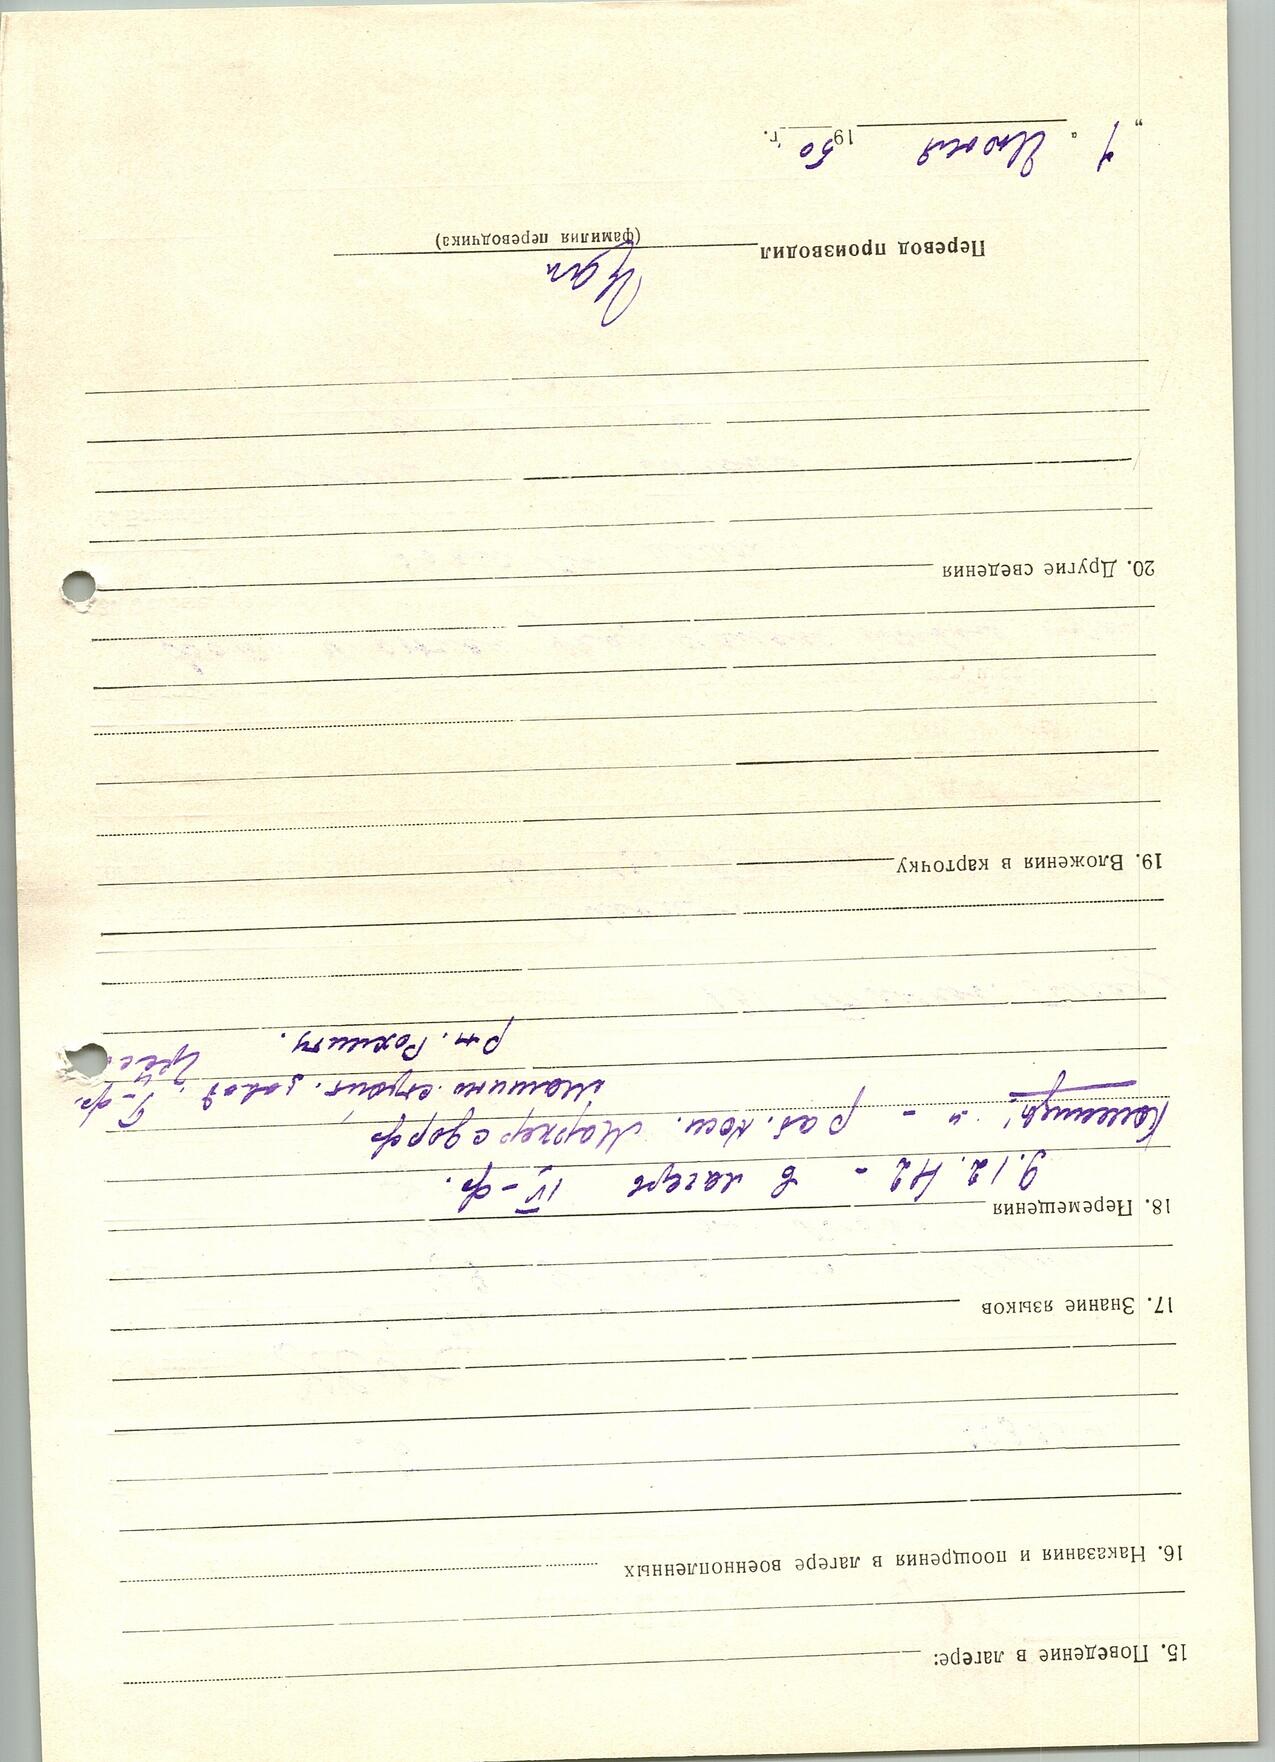 15. Поведение в лагере:
16. Наказания и поощрения в лагере военнопленных
17. Знание языков
18. Перемещения
9.12.42 - в лагерь IV-ф.
- " - раб. ком. Маркерсдорф
Машино строит. завод, Г-ф.
рп. Рохлитц.
19. Вложения в карточку
20. Другие сведения
Перевод производил Цап
(фамилия переводчика)
„ 1 " Июня 1950 г.